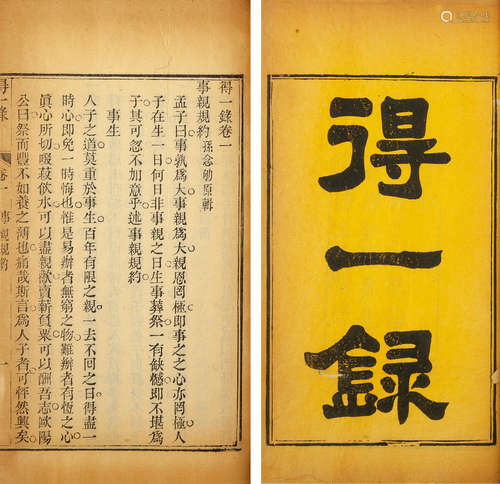 得一錄
得一錄卷一
事親規約 孫念劬原輯
孟子曰事孰爲大事親爲大親恩罔極即事之之心亦罔極人
子在生一日何日非事親之日生事葬祭一有缺憾即不堪爲
子其可忽不如意乎述事親規約
事生
人子之道莫重於事生百年有限之親一去不回之日得盡一
時心即免一時悔也惟是易辦者無窮之物難辦者有恆之心
眞心所切啜菽飲水可以盡親歡賣薪負粟可以酬吾志歐陽
公曰祭而豐不如養之薄也痛哉斯言爲人子者可怦然興矣
得一錄 卷一 事親規約 一